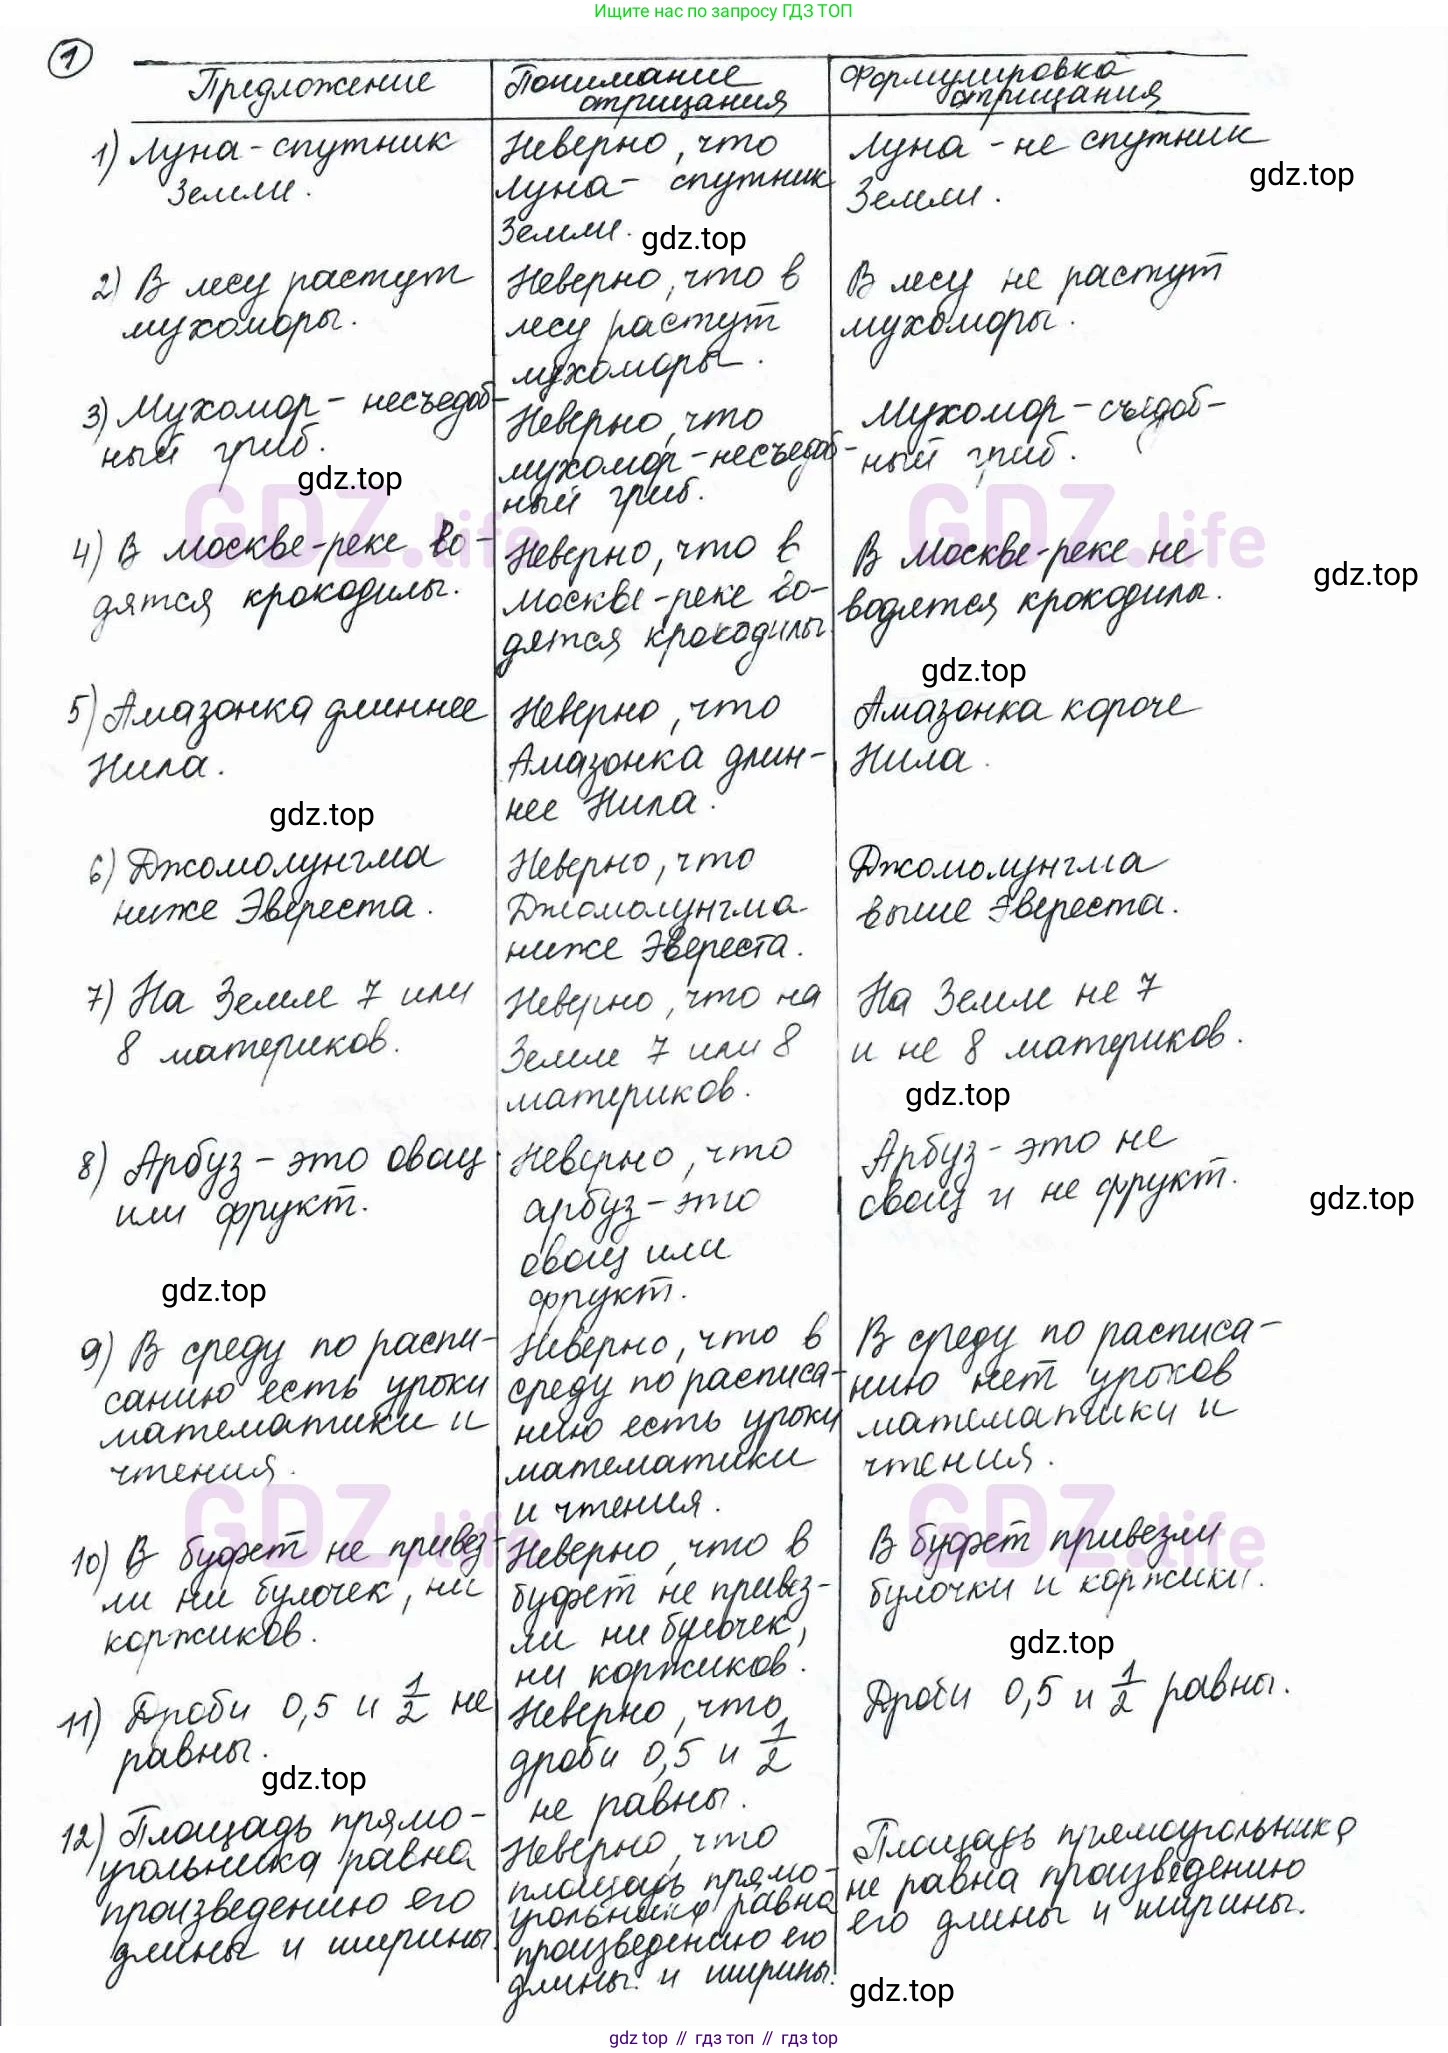 Ищите нас по запросу ГДЗ ТОП
1
Предложение
Понимание
отрицания
Формулировка
отрицания
1) Луна - спутник
Земли.
Неверно, что
Луна - спутник
Земли.
Луна - не спутник
Земли.
gdz.top
gdz.top
2) В лесу растут
мухоморы.
Неверно, что в
лесу растут
мухоморы.
В лесу не растут
мухоморы.
3) Мухомор - несъедоб-
ный гриб.
Неверно, что
мухомор - несъедоб-
ный гриб.
Мухомор - съедоб-
ный гриб.
gdz.top
GDZ.life
GDZ.life
4) В Москве-реке во-
дятся крокодилы.
Неверно, что в
Москве-реке во-
дятся крокодилы
В Москве-реке не
водятся крокодилы.
gdz.top
gdz.top
5) Амазонка длиннее
Нила.
Неверно, что
Амазонка длин-
нее Нила.
Амазонка короче
Нила.
gdz.top
6) Джомолунгма
ниже Эвереста.
Неверно, что
Джомолунгма
ниже Эвереста.
Джомолунгма
выше Эвереста.
7) На Земле 7 или
8 материков.
Неверно, что на
Земле 7 или 8
материков.
На Земле не 7
и не 8 материков.
gdz.top
8) Арбуз - это овощ
или фрукт.
Неверно, что
арбуз - это
овощ или
фрукт.
Арбуз - это не
овощ и не фрукт.
gdz.top
gdz.top
9) В среду по распи-
санию есть уроки
математики и
чтения.
Неверно, что в
среду по расписа-
нию есть уроки
математики
и чтения.
В среду по расписа-
нию нет уроков
математики и
чтения.
GDZ.life
GDZ.life
10) В буфет не привез-
ли ни булочек, ни
коржиков.
Неверно, что в
буфет не привез-
ли ни булочек,
ни коржиков.
В буфет привезли
булочки и коржики.
gdz.top
11) Дроби 0,5 и 1/2 не
равны.
Неверно, что
дроби 0,5 и 1/2
не равны.
Дроби 0,5 и 1/2 равны.
gdz.top
12) Площадь прямо-
угольника равна
произведению его
длины и ширины.
Неверно, что
площадь прямо-
угольника равна
произведению его
длины и ширины.
Площадь прямоугольника
не равна произведению
его длины и ширины.
gdz.top
gdz top // гдз топ // гдз top